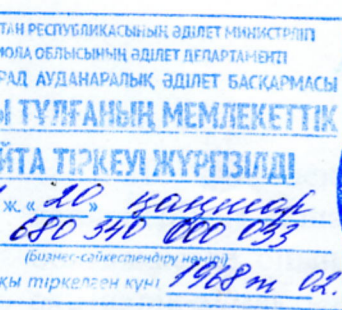 ТАН РЕСПУБЛИКАСЫНЫҢ ӘДІЛЕТ МИНИСТРЛІГІ
МОЛА ОБЛЫСЫНЫҢ ӘДІЛЕТ ДЕПАРТАМЕНТІ
РАД АУДАНАРАЛЫҚ ӘДІЛЕТ БАСҚАРМАСЫ
Ы ТҰЛҒАНЫҢ МЕМЛЕКЕТТІК
ЙТА ТІРКЕУІ ЖҮРГІЗІЛДІ
ж. « 20 » қаңтар
680 340 000 033
(Бизнес-сәйкестендіру нөмірі)
қы тіркелген күні 1968 ж 02.